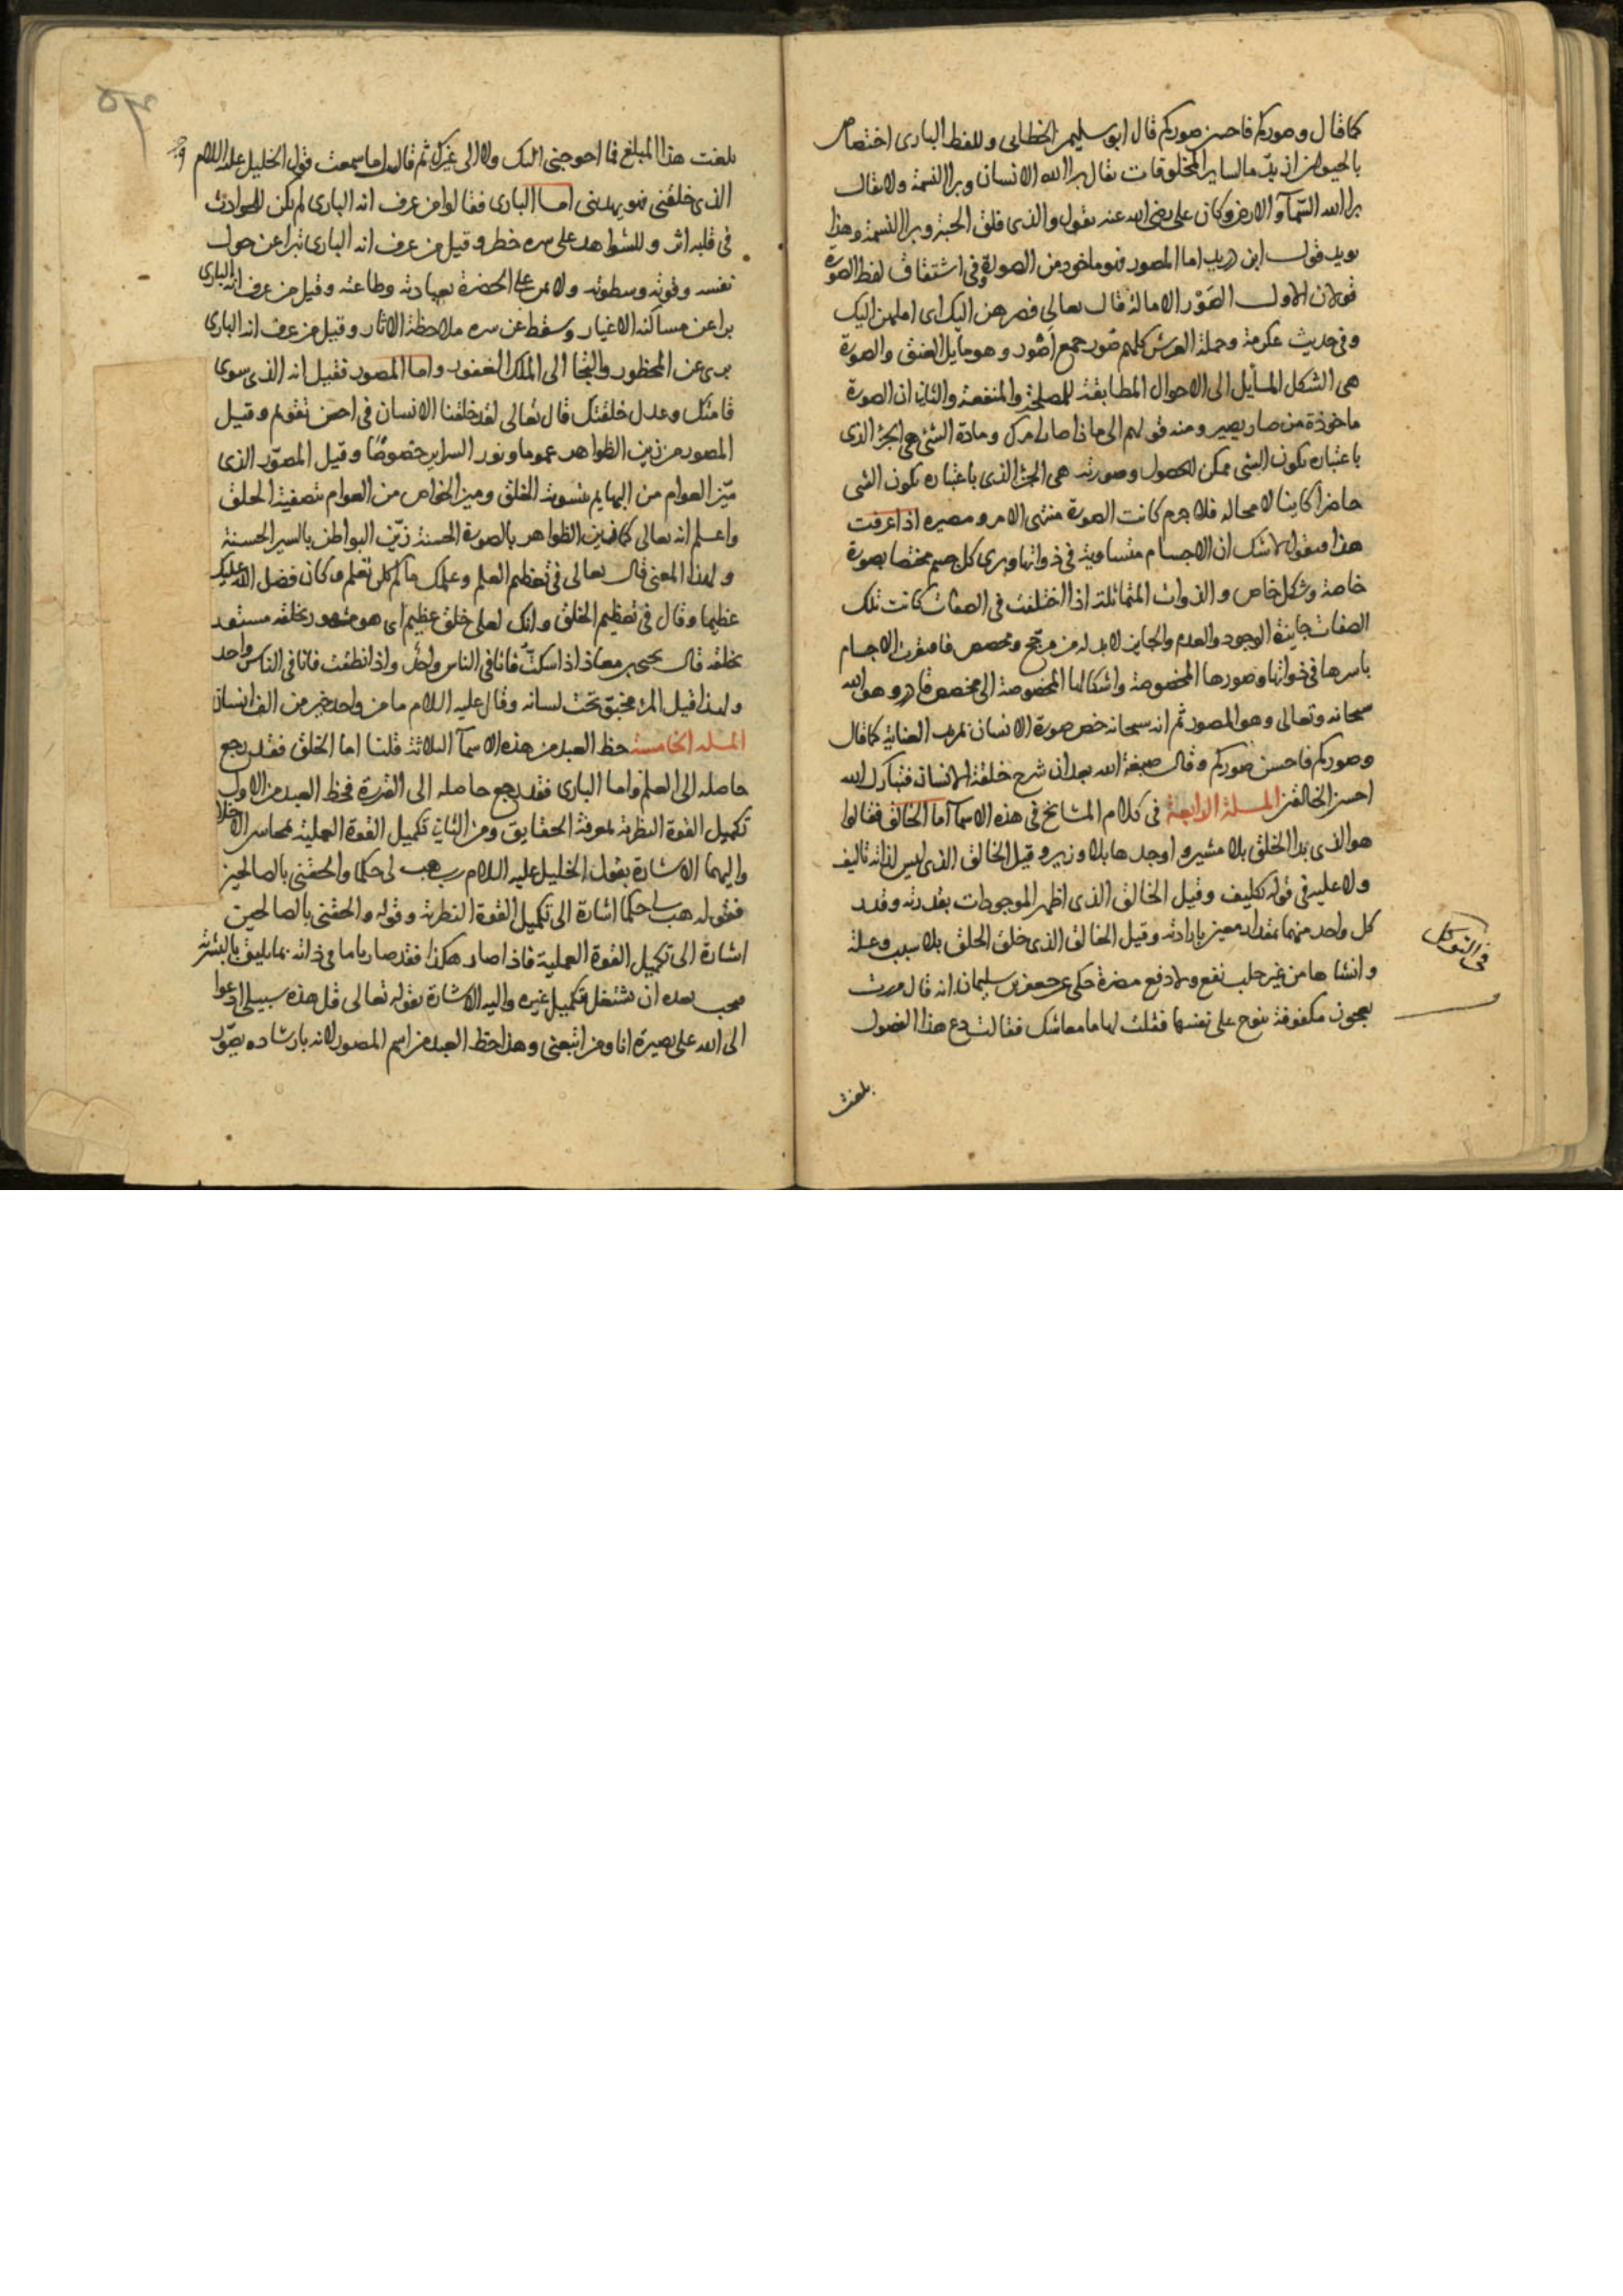 كما قال وصوركم فاحسن صوركم قال ابو سليمن الخطابى وللفظ البارى اختصاص
بالحيوان ازيد مما لساير المخلوقات يقال برا الله الانسان وبرا النسمة ولا يقال
برا الله السمآ والارض وكان على رضى الله عنه يقول والذى فلق الحبة وبرا النسمة وهذا
يويد قول ابن دريد اما المصور فهو ماخوذ من الصورة وفى اشتقاق لفظ الصورة
قولان الاول الصَوْر الامالة قال تعالى فصرهن اليك اى املهن اليك
وفى حديث عكرمة وحملة العرش كلهم صُور جمع اَصْور وهو مايل العنق والصورة
هى الشكل المايل الى الاحوال المطابقة للمصلحة والمنفعة والثانى ان الصورة
ماخوذة من صار يصير ومنه قولهم الى ماذا صار امرك ومادة الشئ هى الجزء الذى
باعتباره يكون الشى ممكن الحصول وصورته هى الجزء الذى باعتباره يكون الشى
حاضرا كاينا لا محاله فلا جرم كانت الصورة منتهى الامر ومصيره اذا عرفت
هذا فنقول لا شك ان الاجسام متساوية فى ذواتها ويرى كل جسم مختصا بصورة
خاصة وشكل خاص والذوات المتماثلة اذا اختلفت فى الصفات كانت تلك
الصفات جايزة الوجود والعدم والجايز لا بد له من مرجح ومخصص فافتقرت الاجسام
باسرها فى ذواتها وصورها المخصوصة واشكالها المخصوصة الى مخصص قادر وهو الله
سبحانه وتعالى وهو المصور ثم انه سبحانه خص صورة الانسان بمزيد العناية كما قال
وصوركم فاحسن صوركم وقال صبغة الله بعد ان شرح خلقة الانسان فتبارك الله
احسن الخالقين المسلة الرابعة فى كلام المشايخ فى هذه الاسما اما الخالق فقالوا
هو الذى بدا الخلق بلا مشير واوجدها بلا وزير وقيل الخالق الذى ليس لذاته تاليف
ولا عليه فى قوله تكليف وقيل الخالق الذى اظهر الموجودات بقدرته وقدر
كل واحد منهما بمقدار معين بارادته وقيل الخالق الذى خلق الخلق بلا سبب وعلة
وانشاها من غير جلب نفع ولا دفع مضرة حكى عن جعفر بن سليمان انه قال مررت
بعجوز مكفوفة تنوح على نفسها فقلت لها ما معاشك فقالت دع هذا الفضول
فى التوكل
بلغت
بلغت هذا المبلغ فما احوجنى اليك ولا الى غيرك ثم قالت اما سمعت قول الخليل عليه السلام
الذى خلقنى فهو يهدينى اما البارى فقالوا من عرف انه البارى لم يكن للحوادث
فى قلبه اثر وللشواهد على سره خطر وقيل من عرف انه البارى تبرا عن حول
نفسه وقوته وسطوته ولا يمن على الحضرة بعبادته وطاعته وقيل من عرف انه البارى
برا عن مساكنة الاغيار وسقط عن سره ملاحظة الاثار وقيل من عرف انه البارى
برى عن المحظور والتجا الى الملك الغفور واما المصور فقيل انه الذى سوى
قامتك وعدل خلقتك قال تعالى لقد خلقنا الانسان فى احسن تقويم وقيل
المصور من زين الظواهر عموما ونور السراير خصوصًا وقيل المصوّر الذى
ميّز العوام من البهايم بتسوية الخلق وميز الخواص من العوام بتصفية الخلق
واعلم انه تعالى كما زين الظواهر بالصورة الحسنة زيّن البواطن بالسير الحسنة
ولهذا المعنى قال تعالى فى تعظيم العلم وعلمك ما لم تكن تعلم وكان فضل الله عليك
عظيما وقال فى تعظيم الخلق وانك لعلى خلق عظيم اى هو مشهور بخلقه مستور
بخلقه قال يحيى بن معاذ اذا سكتّ فانا فى الناس واحد واذا نطقت فانا فى الناس واحد
ولهذا قيل المرء مختبئ تحت لسانه وقال عليه السلام ما من واحد خير من الف انسان
المسلة الخامسة حظ العبد من هذه الاسمآ الثلاثة قلنا اما الخلق فقد يرجع
حاصله الى العلم واما البارى فقد يرجع حاصله الى القدرة فحظ العبد من الاول
تكميل القوة النظرية بمعرفة الحقايق ومن الثانى تكميل القوة العملية بمحاسن الاخلاق
واليهما الاشارة بقول الخليل عليه السلام رب هب لى حكما والحقنى بالصالحين
فقوله هب لى حكما اشارة الى تكميل القوة النظرية وقوله والحقنى بالصالحين
اشارة الى تكميل القوة العملية فاذا صار هكذا فقد صار تاما فى ذاته بما يليق بالبشرية
فيجب بعده ان يشتغل بتكميل غيره واليه الاشارة بقوله تعالى قل هذه سبيلى ادعوا
الى الله على بصيرة انا ومن اتبعنى وهذا حظ العبد من اسم المصور لانه بارشاده يصوّر